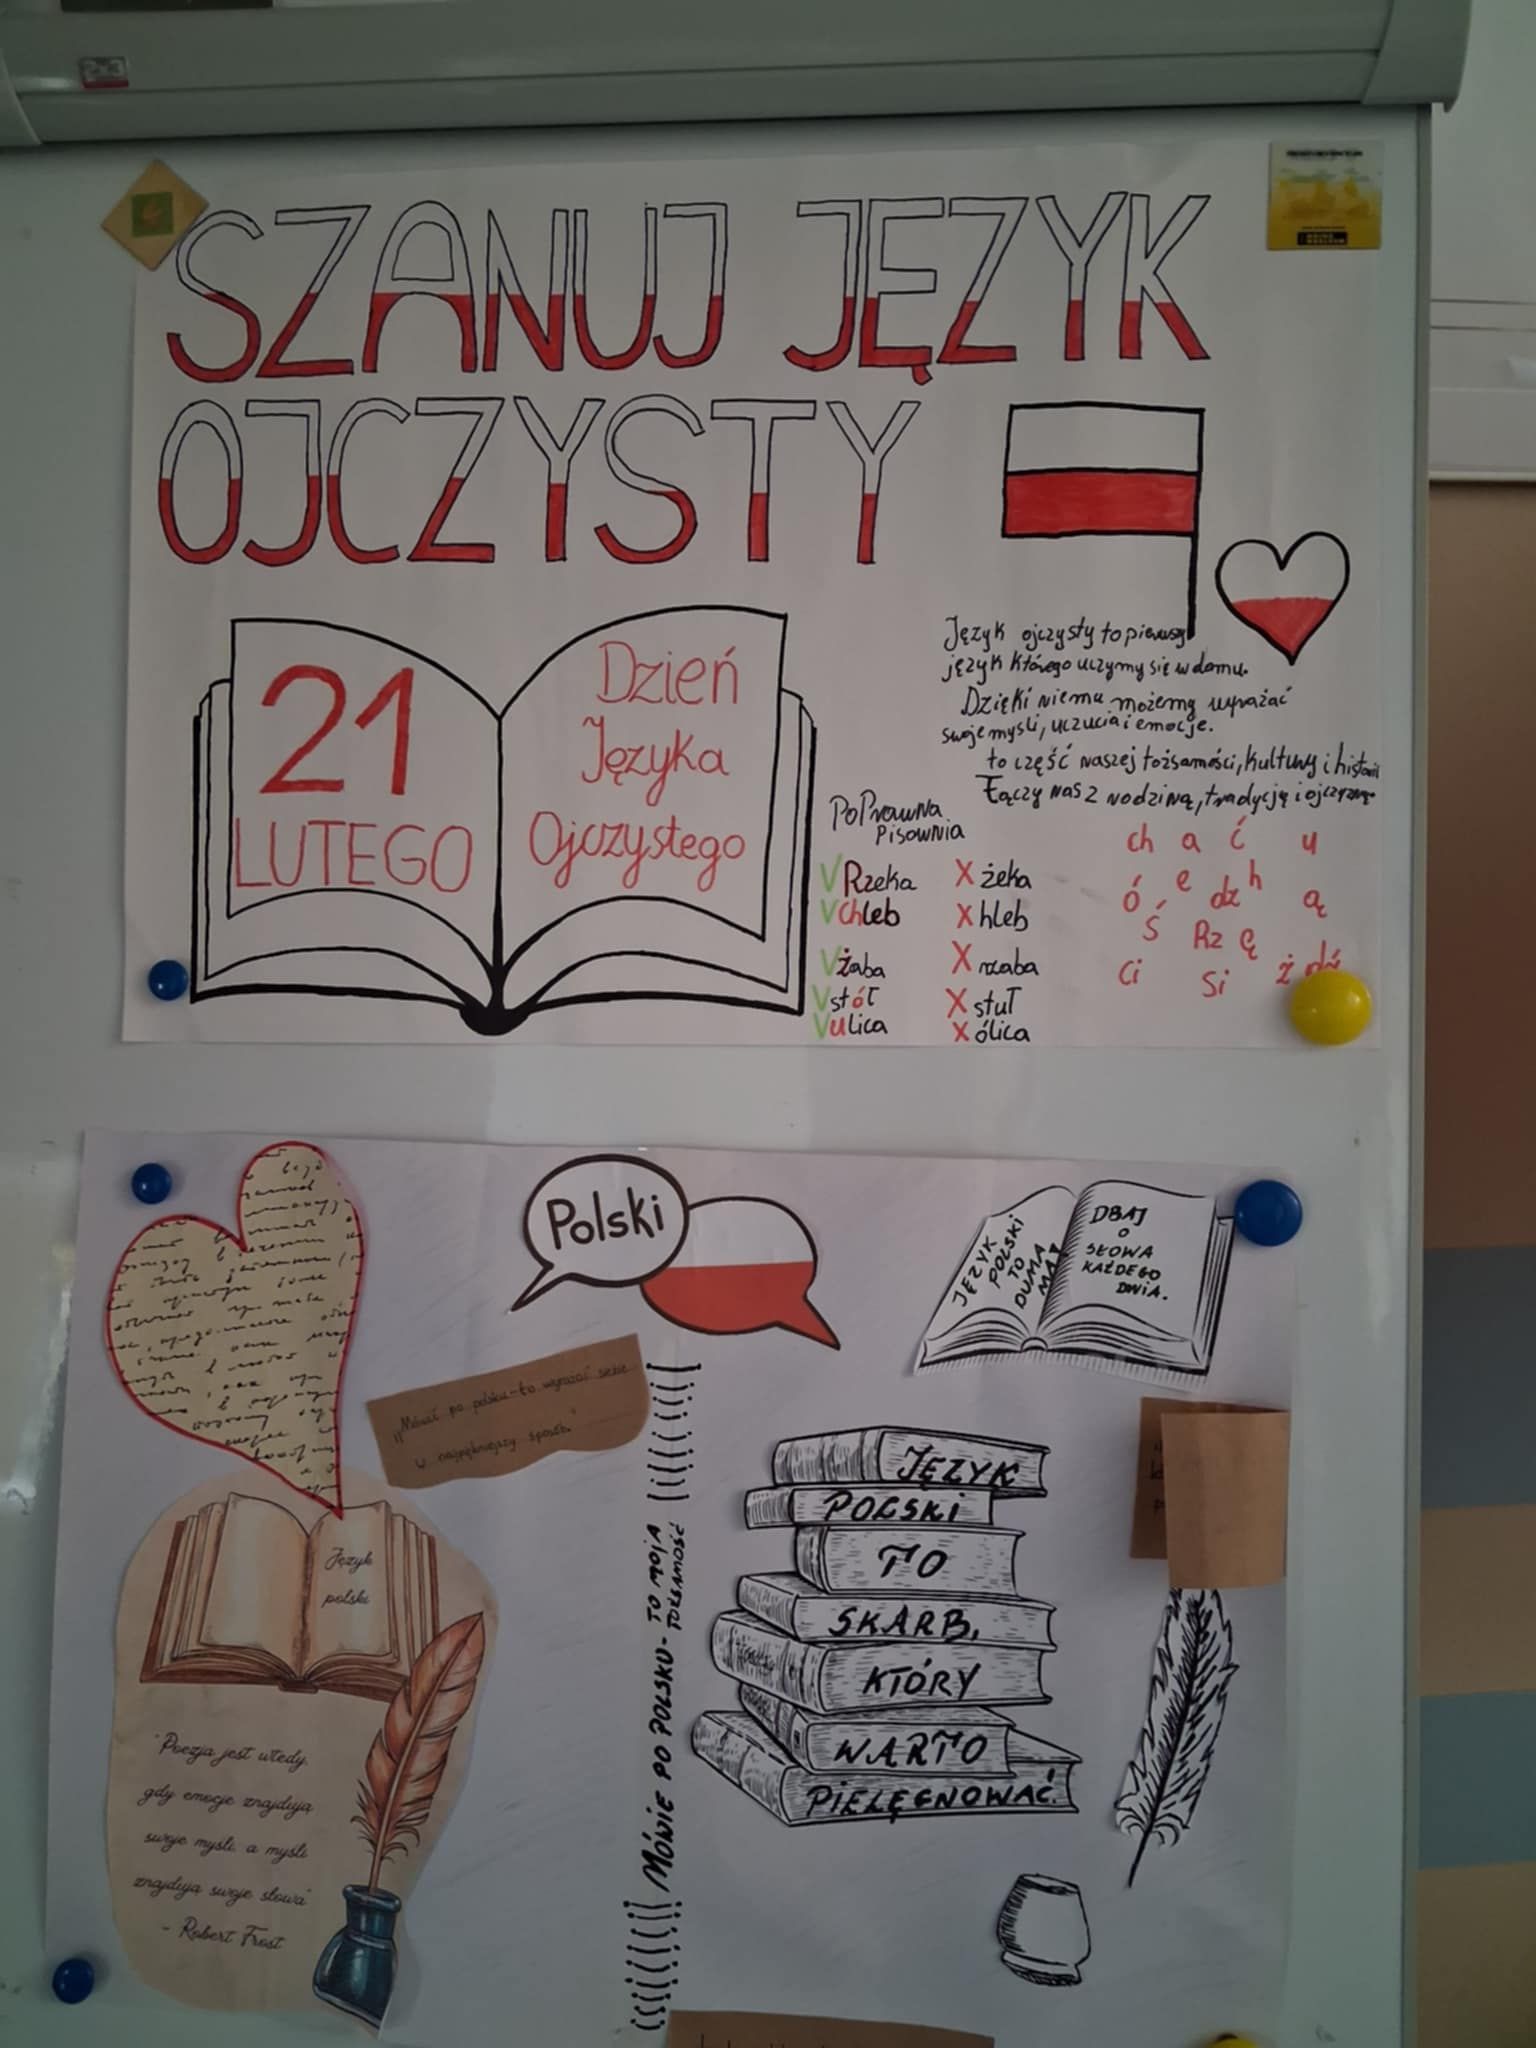 2x3
SZANUJ JĘZYK
OJCZYSTY
21
LUTEGO
Dzień
Języka
Ojczystego
Język ojczysty to pierwszy
język którego uczymy się w domu.
Dzięki niemu możemy wyrażać
swoje myśli, uczucia i emocje.
to część naszej tożsamości, kultury i historii
Łączy nas z rodziną, tradycją i ojczyzną
Poprawna
Pisownia
V Rzeka X żeka
V Chleb X hleb
V żaba X rzaba
V stół X stuł
V ulica X ólica
ch a ć u
ó e dz h ą
Ś Rz Ę
Ci Si ż dź
Polski
JĘZYK
POLSKI
TO
DUMA
MA
DBAJ
O
SŁOWA
KAŻDEGO
DNIA.
„Mówić po polsku - to wyrażać siebie
w najpiękniejszy sposób."
MÓWIĘ PO POLSKU - TO MOJA
TOŻSAMOŚĆ
JĘZYK
POLSKI
TO
SKARB,
KTÓRY
WARTO
PIELĘGNOWAĆ.
Język
polski
"Poezja jest wtedy,
gdy emocje znajdują
swoje myśli, a myśli
znajdują swoje słowa"
- Robert Frost